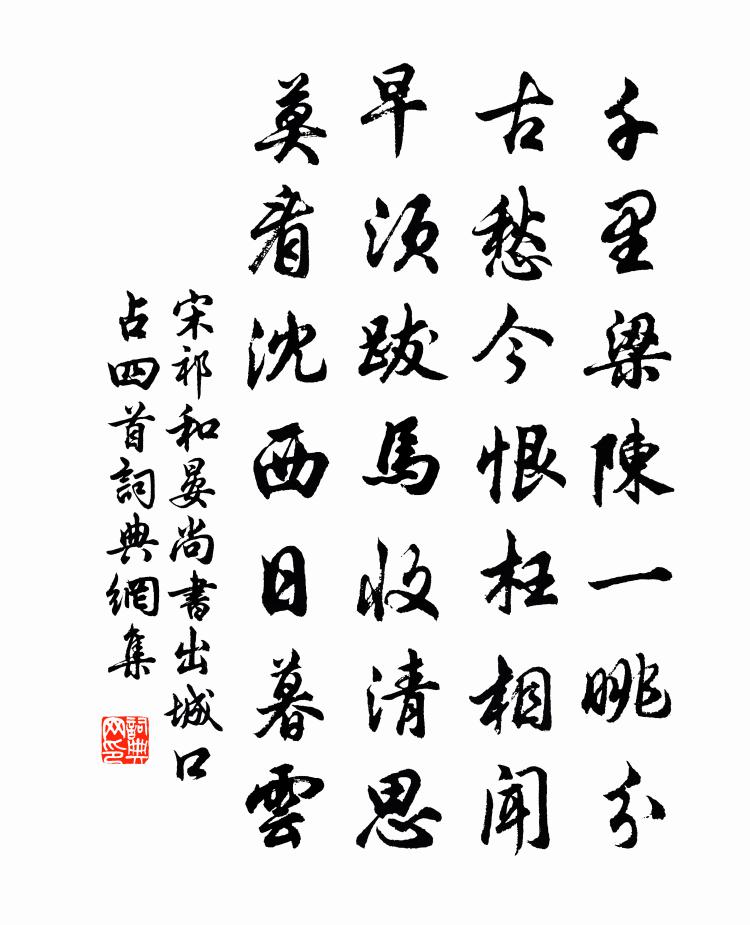 千里梁陳一眺分
古愁今恨枉相聞
早須跋馬收清思
莫看沈西日暮雲
宋祁和晏尚書出城口
占四首詞典網集
詞典网印